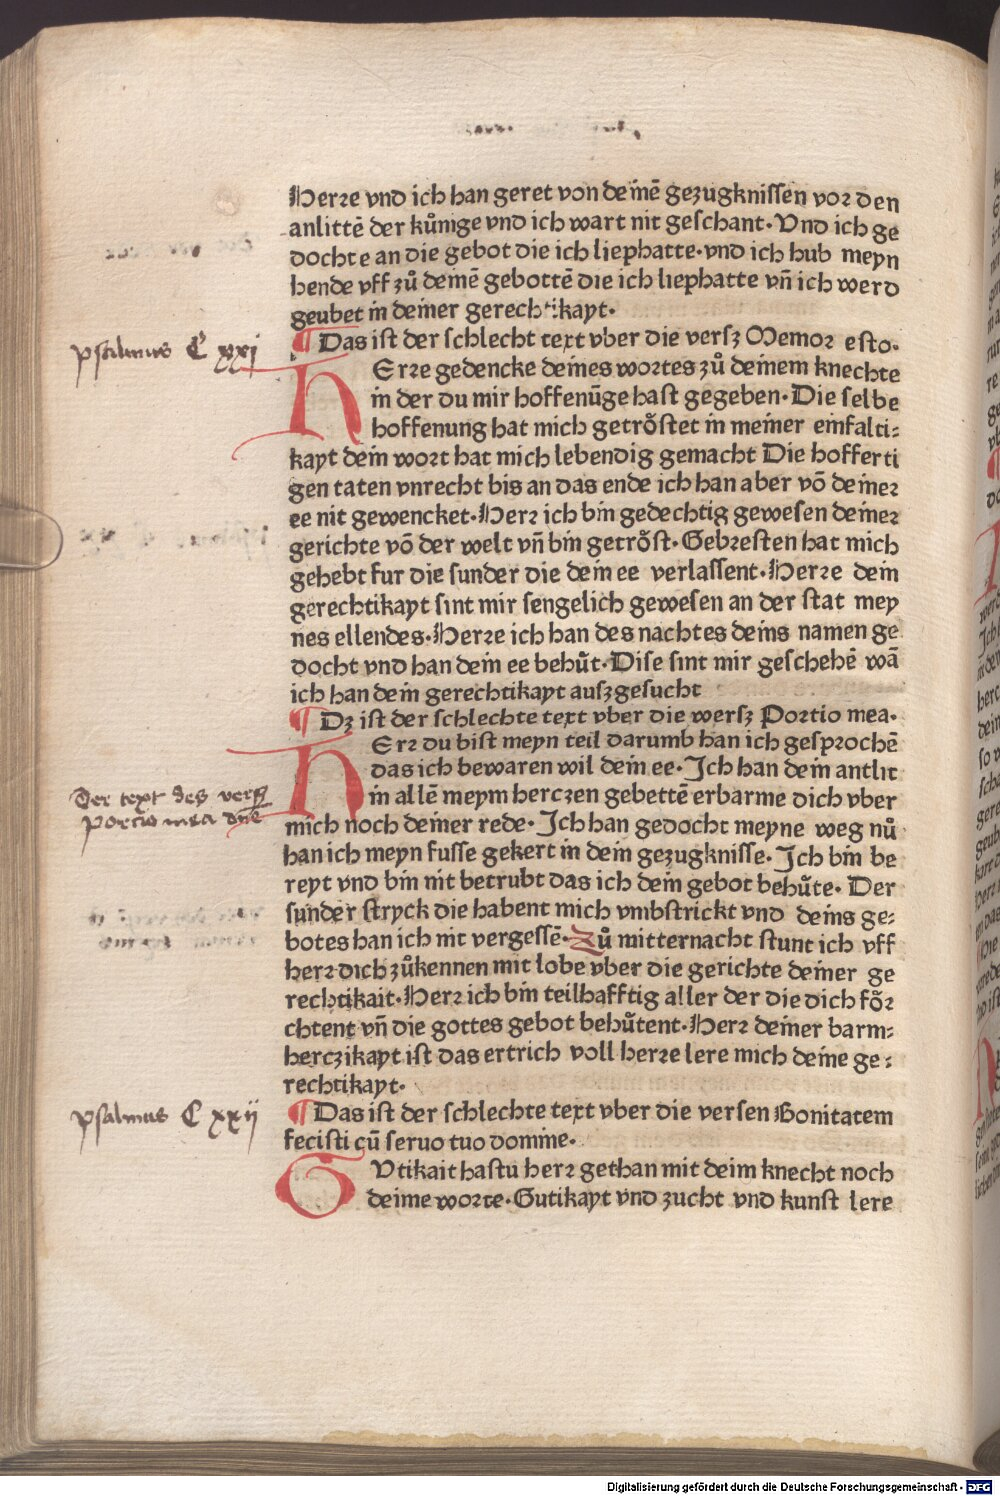 Herre vnd ich han geret von deinē gezugknissen vor den
anlittē der kůnige vnd ich wart nit geschant. Vnd ich ge
dochte an die gebot die ich liephatte. vnd ich hub meyn
hende vff zů deinē gebottē die ich liephatte vñ ich werd
geubet in deiner gerechtikayt.
Psalmus C xxj
¶ Das ist der schlecht text vber die versz Memor esto.
HErre gedencke deines wortes zů deinem knechte
in der du mir hoffenūge hast gegeben. Die selbe
hoffenung hat mich getrőstet in meiner einfalti⸗
kayt dein wort hat mich lebendig gemacht Die hofferti
gen taten vnrecht bis an das ende ich han aber vō deiner
ee nit gewencket. Herr ich bin gedechtig gewesen deiner
gerichte vō der welt vñ bin getrőst. Gebresten hat mich
gehebt fur die sunder die dein ee verlassent. Herre dein
gerechtikayt sint mir sengelich gewesen an der stat mey
nes ellendes. Herre ich han des nachtes deins namen ge
docht vnd han dein ee behůt. Dise sint mir geschehē wā
ich han dein gerechtikayt auszgesucht
¶ Dz ist der schlechte text vber die wersz Portio mea.
HErr du bist meyn teil darumb han ich gesprochē
das ich bewaren wil dein ee. Ich han dein antlit
Der text des versz
portio mea dn̄e
in allē meym herczen gebettē erbarme dich vber
mich noch deiner rede. Ich han gedocht meyne weg nů
han ich meyn fusse gekert in dein gezugknisse. Ich bin be
reyt vnd bin nit betrubt das ich dein gebot behůte. Der
sunder stryck die habent mich vmbstrickt vnd deins ge⸗
botes han ich nit vergessē. Zů mitternacht stunt ich vff
herr dich zůkennen mit lobe vber die gerichte deiner ge
rechtikait. Herr ich bin teilhafftig aller der die dich főr
chtent vñ die gottes gebot behůtent. Herr deiner barm⸗
herczikayt ist das ertrich voll herre lere mich deine ge⸗
rechtikayt.
Psalmus C xxij
¶ Das ist der schlechte text vber die versen Bonitatem
fecisti cū seruo tuo domine.
GVtikait hastu herr gethan mit deim knecht noch
deime worte. Gutikayt vnd zucht vnd kunst lere
Digitalisierung gefördert durch die Deutsche Forschungsgemeinschaft - DFG